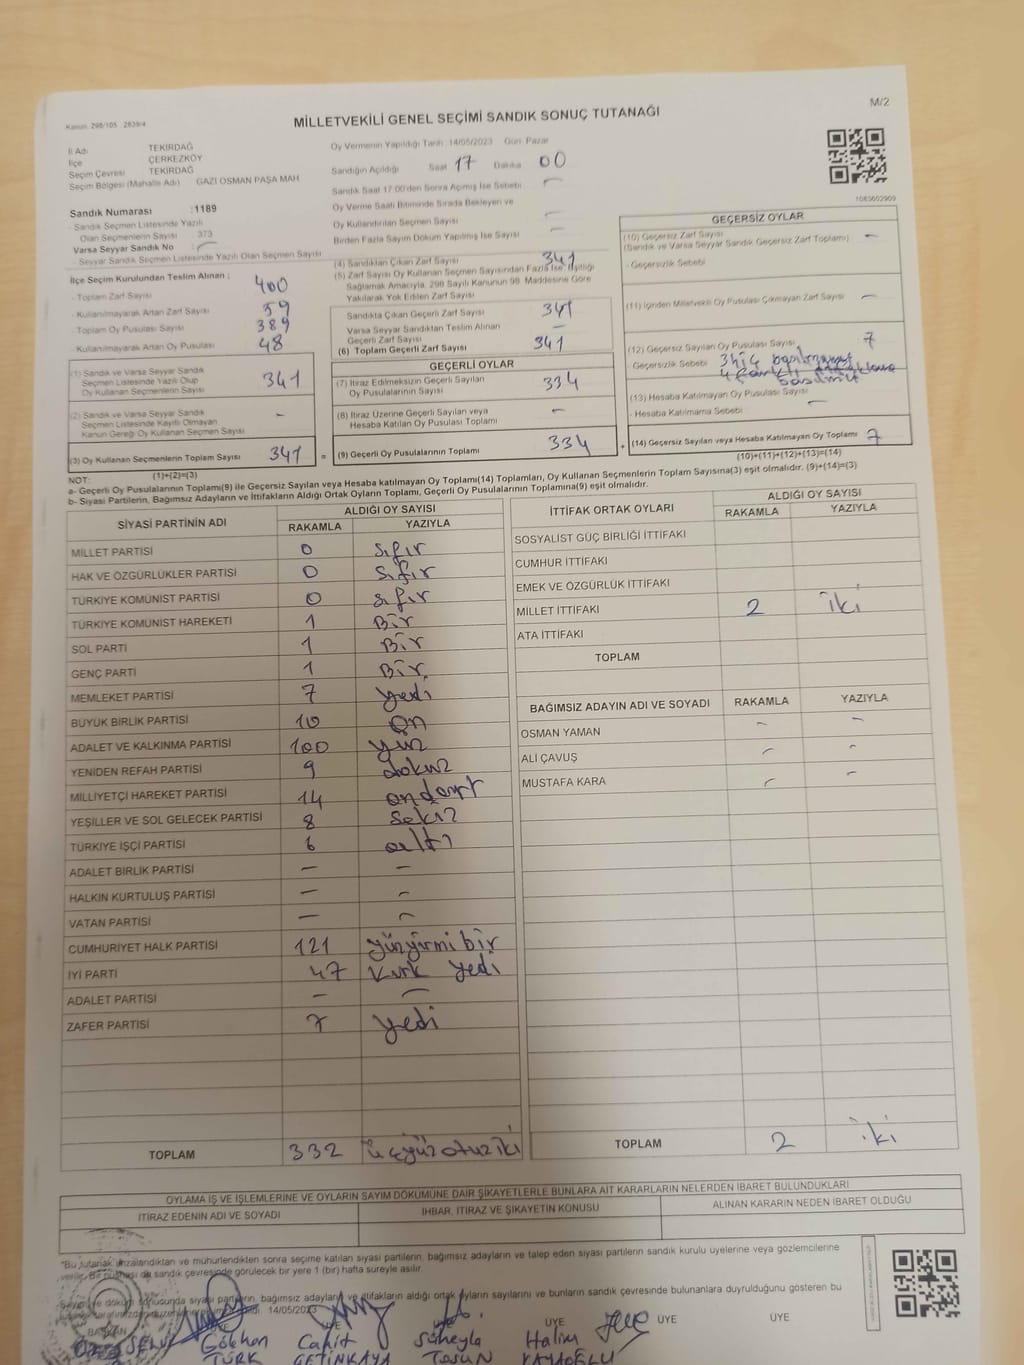 Kanun: 298/105 2839/4
M/2
MİLLETVEKİLİ GENEL SEÇİMİ SANDIK SONUÇ TUTANAĞI
İl Adı TEKİRDAĞ
İlçe ÇERKEZKÖY
Seçim Çevresi TEKİRDAĞ
Seçim Bölgesi (Mahalle Adı) GAZİ OSMAN PAŞA MAH
Oy Vermenin Yapıldığı Tarih: 14/05/2023 Gün: Pazar
Sandığın Açıldığı Saat 17 Dakika 00
Sandık Saat 17.00'den Sonra Açılmış İse Sebebi —
Oy Verme Saati Bitiminde Sırada Bekleyen ve
Oy Kullandırılan Seçmen Sayısı —
Birden Fazla Sayım Döküm Yapılmış İse Sayısı —
1083602909
Sandık Numarası : 1189
- Sandık Seçmen Listesinde Yazılı
Olan Seçmenlerin Sayısı 373
Varsa Seyyar Sandık No —
- Seyyar Sandık Seçmen Listesinde Yazılı Olan Seçmen Sayısı
İlçe Seçim Kurulundan Teslim Alınan ;
- Toplam Zarf Sayısı 400
- Kullanılmayarak Artan Zarf Sayısı 59
- Toplam Oy Pusulası Sayısı 389
- Kullanılmayarak Artan Oy Pusulası 48
(1) Sandık ve Varsa Seyyar Sandık
Seçmen Listesinde Yazılı Olup
Oy Kullanan Seçmen Sayısı 341
(2) Sandık ve Varsa Seyyar Sandık
Seçmen Listesinde Kayıtlı Olmayan
Kanun Gereği Oy Kullanan Seçmen Sayısı -
(3) Oy Kullanan Seçmenlerin Toplam Sayısı 341 =
(1)+(2)=(3)
(4) Sandıktan Çıkan Zarf Sayısı 341
(5) Zarf Sayısı Oy Kullanan Seçmen Sayısından Fazla İse, Eşitliği
Sağlamak Amacıyla, 298 Sayılı Kanunun 98. Maddesine Göre
Yakılarak Yok Edilen Zarf Sayısı
Sandıkta Çıkan Geçerli Zarf Sayısı 341
Varsa Seyyar Sandıktan Teslim Alınan
Geçerli Zarf Sayısı —
(6) Toplam Geçerli Zarf Sayısı 341
GEÇERLİ OYLAR
(7) İtiraz Edilmeksizin Geçerli Sayılan
Oy Pusulalarının Sayısı 334
(8) İtiraz Üzerine Geçerli Sayılan veya
Hesaba Katılan Oy Pusulası Toplamı —
(9) Geçerli Oy Pusulalarının Toplamı 334 +
GEÇERSİZ OYLAR
(10) Geçersiz Zarf Sayısı —
(Sandık ve Varsa Seyyar Sandık Geçersiz Zarf Toplamı)
- Geçersizlik Sebebi
(11) İçinden Milletvekili Oy Pusulası Çıkmayan Zarf Sayısı —
(12) Geçersiz Sayılan Oy Pusulası Sayısı 7
Geçersizlik Sebebi 3 hiç basılmamış
4 farklı
basılmış
(13) Hesaba Katılmayan Oy Pusulası Sayısı —
- Hesaba Katılmama Sebebi
(14) Geçersiz Sayılan veya Hesaba Katılmayan Oy Toplamı 7
(10)+(11)+(12)+(13)=(14)
NOT:
a- Geçerli Oy Pusulalarının Toplamı(9) ile Geçersiz Sayılan veya Hesaba katılmayan Oy Toplamı(14) Toplamları, Oy Kullanan Seçmenlerin Toplam Sayısına(3) eşit olmalıdır. (9)+(14)=(3)
b- Siyasi Partilerin, Bağımsız Adayların ve İttifakların Aldığı Ortak Oyların Toplamı, Geçerli Oy Pusulalarının Toplamına(9) eşit olmalıdır.
SİYASİ PARTİNİN ADI ALDIĞI OY SAYISI
RAKAMLA YAZIYLA
MİLLET PARTİSİ 0 sıfır
HAK VE ÖZGÜRLÜKLER PARTİSİ 0 sıfır
TÜRKİYE KOMÜNİST PARTİSİ 0 sıfır
TÜRKİYE KOMÜNİST HAREKETİ 1 Bir
SOL PARTİ 1 Bir
GENÇ PARTİ 1 Bir
MEMLEKET PARTİSİ 7 yedi
BÜYÜK BİRLİK PARTİSİ 10 on
ADALET VE KALKINMA PARTİSİ 100 yüz
YENİDEN REFAH PARTİSİ 9 dokuz
MİLLİYETÇİ HAREKET PARTİSİ 14 ondört
YEŞİLLER VE SOL GELECEK PARTİSİ 8 sekiz
TÜRKİYE İŞÇİ PARTİSİ 6 altı
ADALET BİRLİK PARTİSİ — —
HALKIN KURTULUŞ PARTİSİ — —
VATAN PARTİSİ — —
CUMHURİYET HALK PARTİSİ 121 yüzyirmi bir
İYİ PARTİ 47 kırk yedi
ADALET PARTİSİ — —
ZAFER PARTİSİ 7 yedi
TOPLAM 332 üçyüzotuziki
İTTİFAK ORTAK OYLARI ALDIĞI OY SAYISI
RAKAMLA YAZIYLA
SOSYALİST GÜÇ BİRLİĞİ İTTİFAKI
CUMHUR İTTİFAKI
EMEK VE ÖZGÜRLÜK İTTİFAKI
MİLLET İTTİFAKI 2 iki
ATA İTTİFAKI
TOPLAM
BAĞIMSIZ ADAYIN ADI VE SOYADI RAKAMLA YAZIYLA
OSMAN YAMAN — —
ALİ ÇAVUŞ — —
MUSTAFA KARA — —
TOPLAM 2 iki
OYLAMA İŞ VE İŞLEMLERİNE VE OYLARIN SAYIM DÖKÜMÜNE DAİR ŞİKAYETLERLE BUNLARA AİT KARARLARIN NELERDEN İBARET BULUNDUKLARI
İTİRAZ EDENİN ADI VE SOYADI İHBAR, İTİRAZ VE ŞİKAYETİN KONUSU ALINAN KARARIN NEDEN İBARET OLDUĞU
"Bu tutanak imzalandıktan ve mühürlendikten sonra seçime katılan siyasi partilerin, bağımsız adayların ve talep eden siyasi partilerin sandık kurulu üyelerine veya gözlemcilerine
verilir. Bir nüshası da sandık çevresinde görülecek bir yere 1 (bir) hafta süreyle asılır.
Sayım ve döküm sonucunda siyasi partilerin, bağımsız adayların ve ittifakların aldığı ortak oyların sayılarını ve bunların sandık çevresinde bulunanlara duyrulduğunu gösteren bu
14/05/2023
BAŞKAN ÜYE ÜYE ÜYE
Gökhan Cahit Süheyla Halim
TÜRK ÇETİNKAYA TOSUN